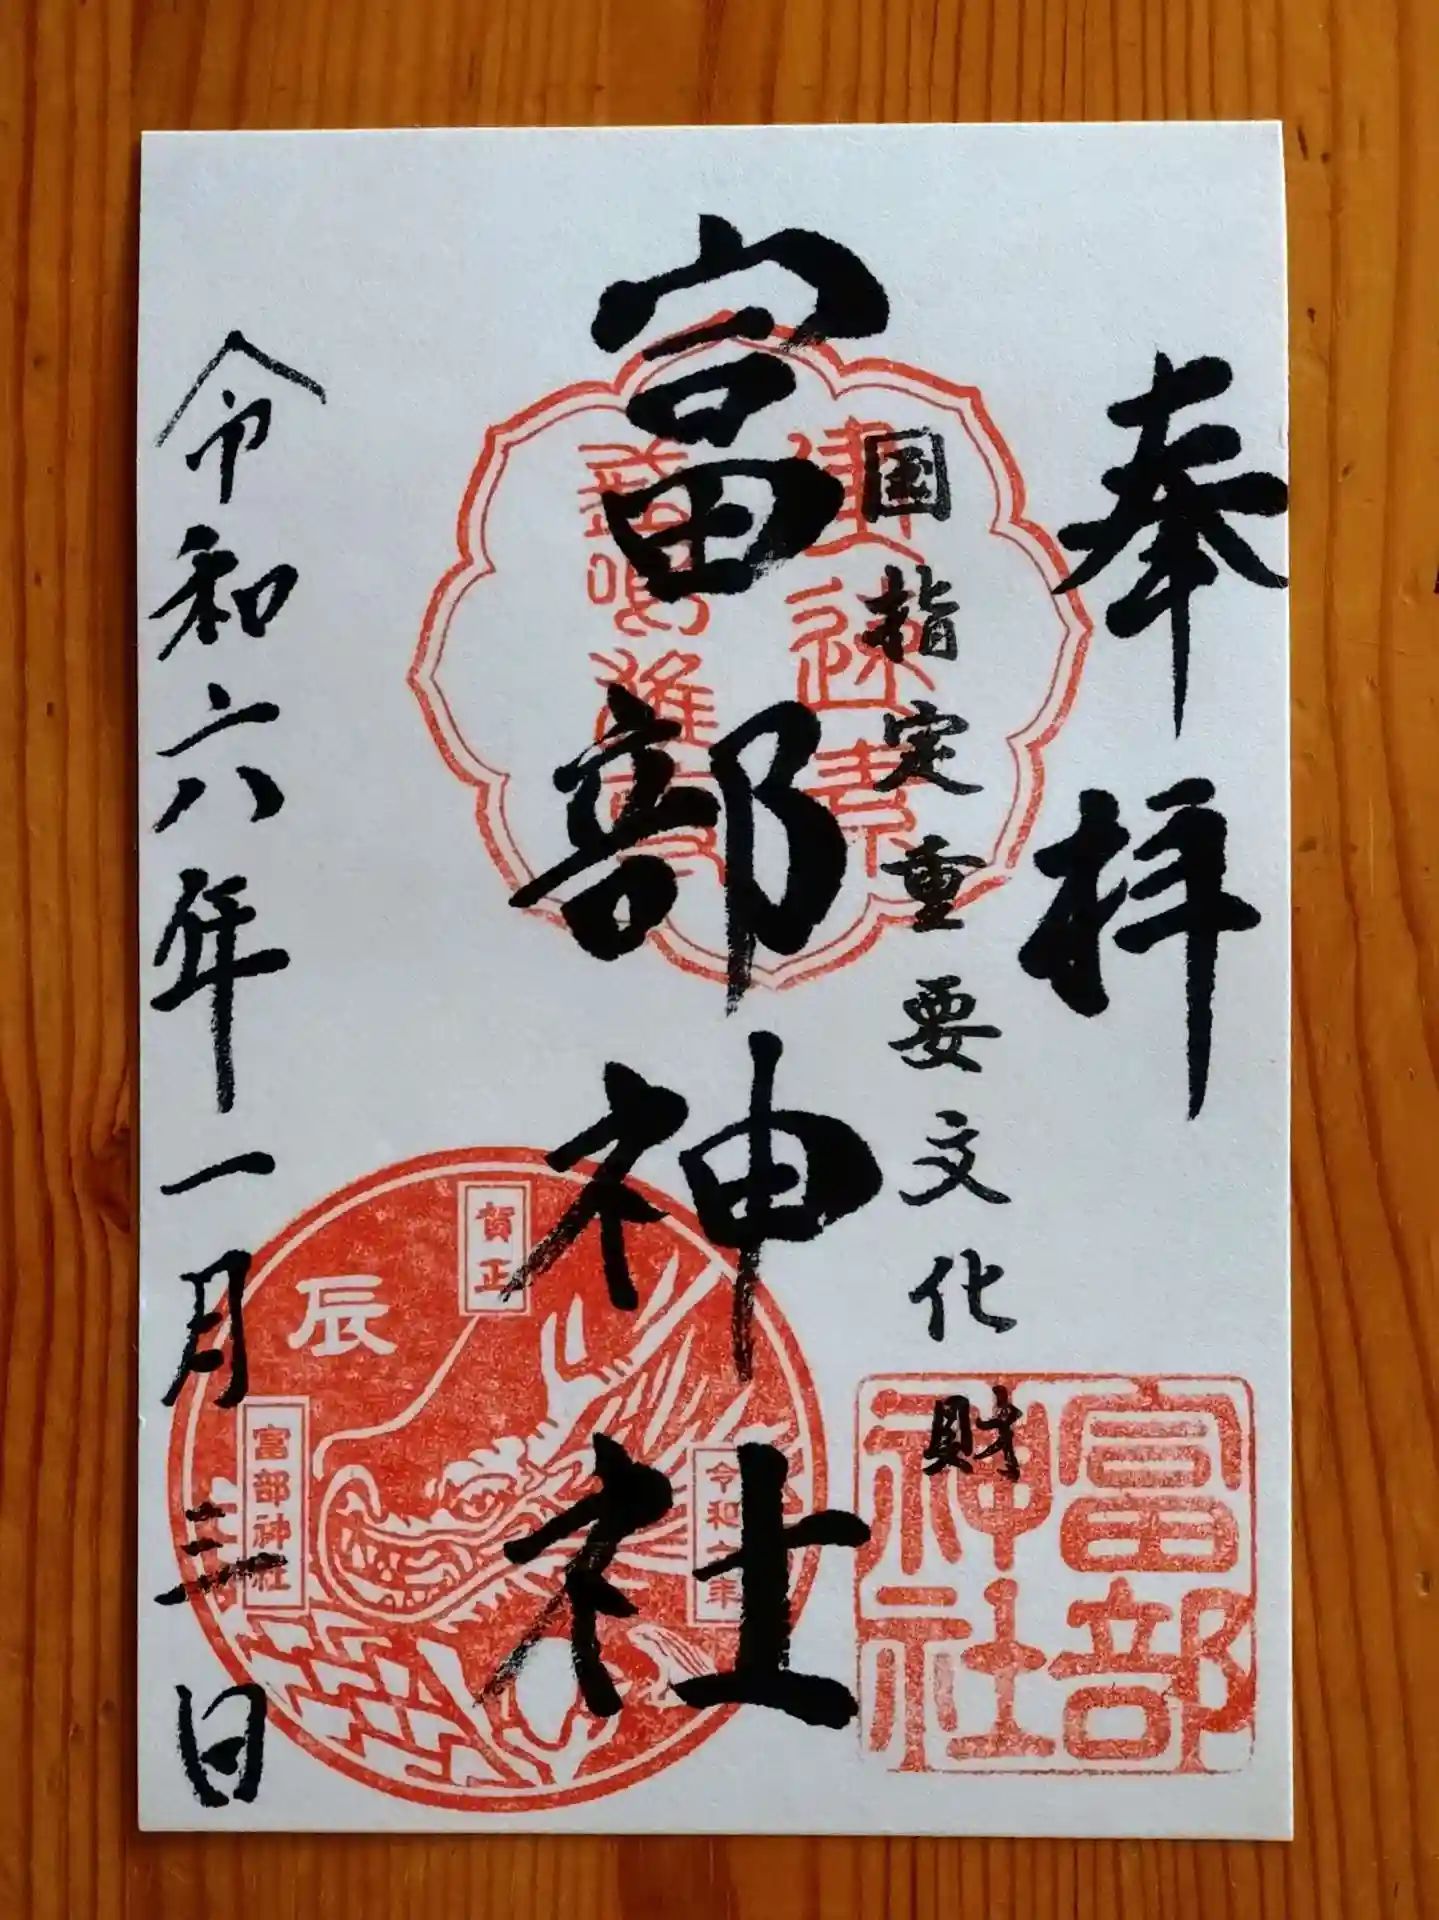 奉拝
国指定重要文化財
富部神社
令和六年一月三日
建速素
盞嗚雄
賀正
辰
富部神社
令和六年
富部
神社